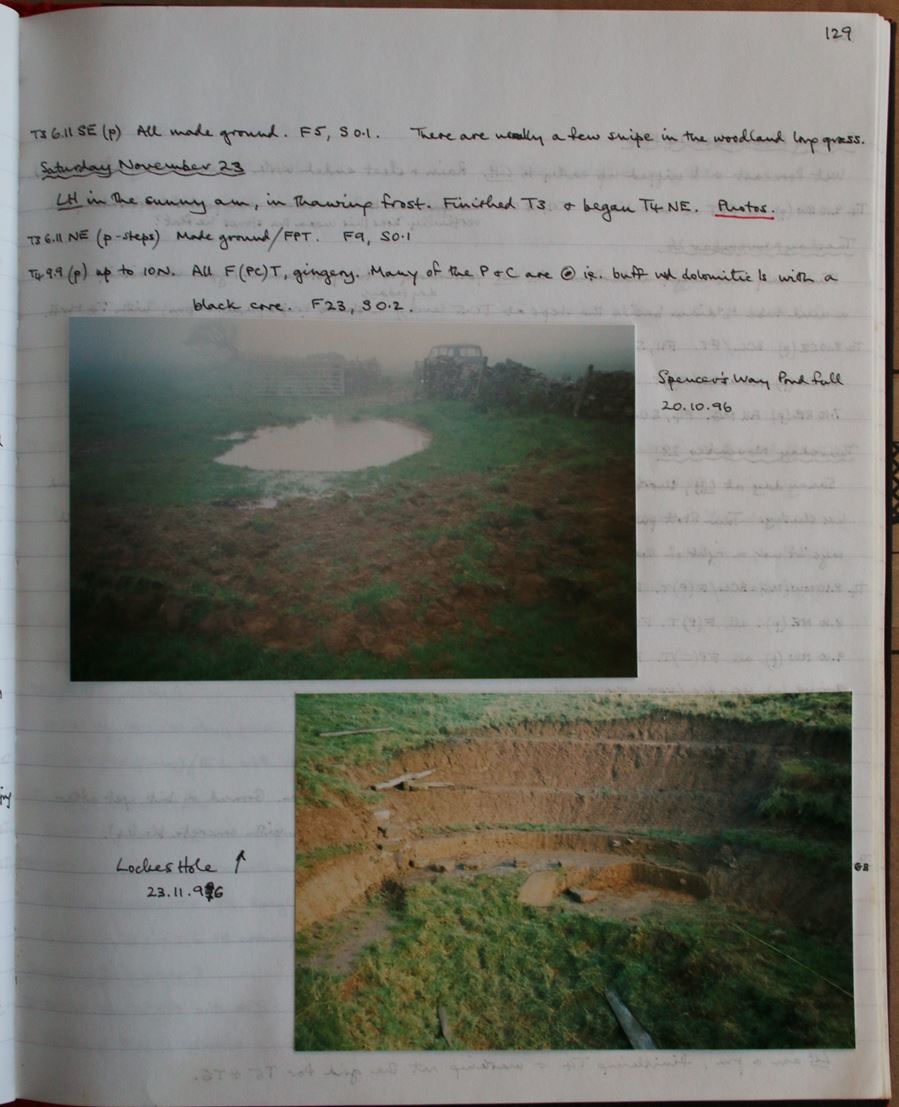 129
T3 6.11 SE (p) All made ground. F5, S0.1. There are usually a few snipe in the woodland long grass.
Saturday November 23
LH in the sunny am, in thawing frost. Finished T3 & began T4 NE. Photos.
T3 6.11 NE (p-steps) Made ground/FPT. F9, S0.1
T4 9.9 (p) up to 10N. All F(PC)T, gingery. Many of the P & C are ie. buff dolomitic ls with a
black core. F23, S0.2.
Spencer's Way Pond full
20.10.96
Lockes Hole ↑
23.11.96